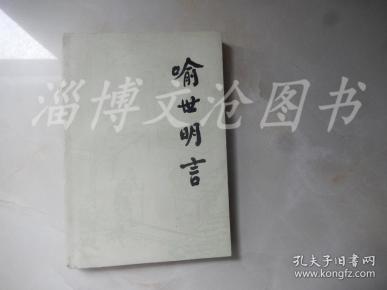 喻世明言
淄博文沧图书
孔夫子旧书网
www.kongfz.com